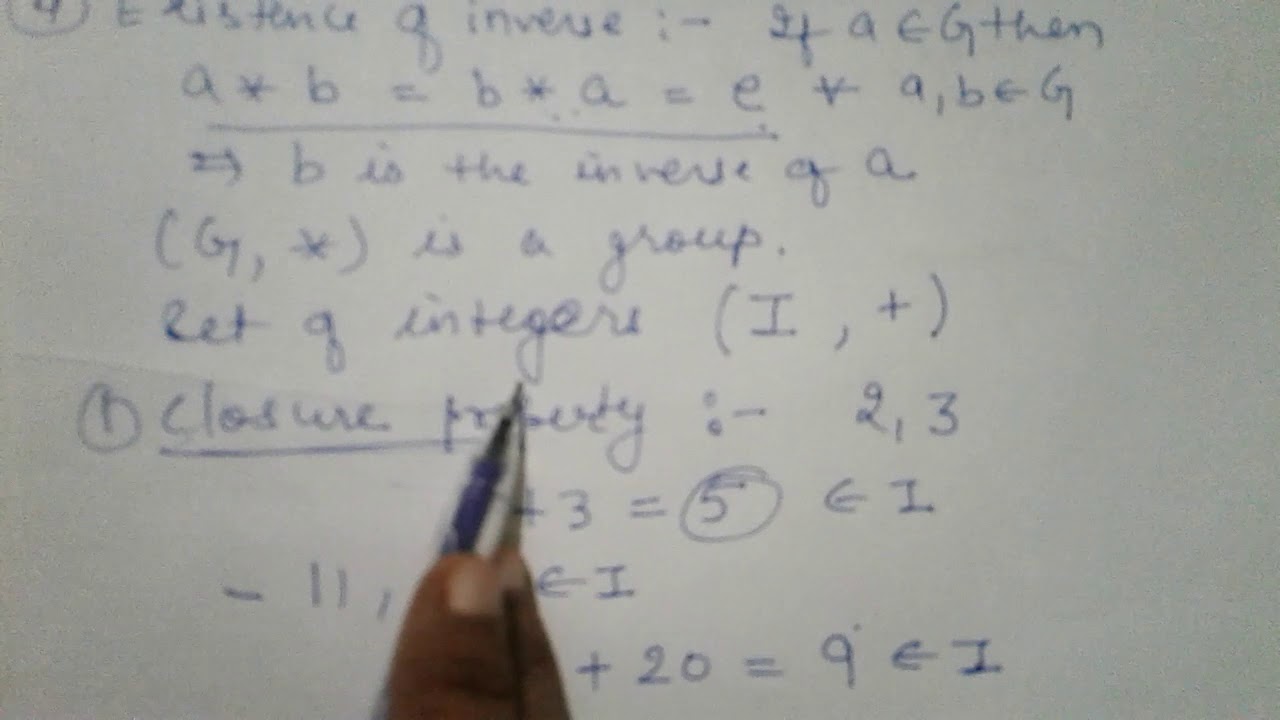 (4) Existence of inverse :- If a ∈ G then
a * b = b * a = e ∀ a, b ∈ G
⇒ b is the inverse of a
(G, *) is a group.
Set of integers (I, +)
(1) Closure property :- 2, 3
+ 3 = 5 ∈ I
- 11, ∈ I
+ 20 = 9 ∈ I